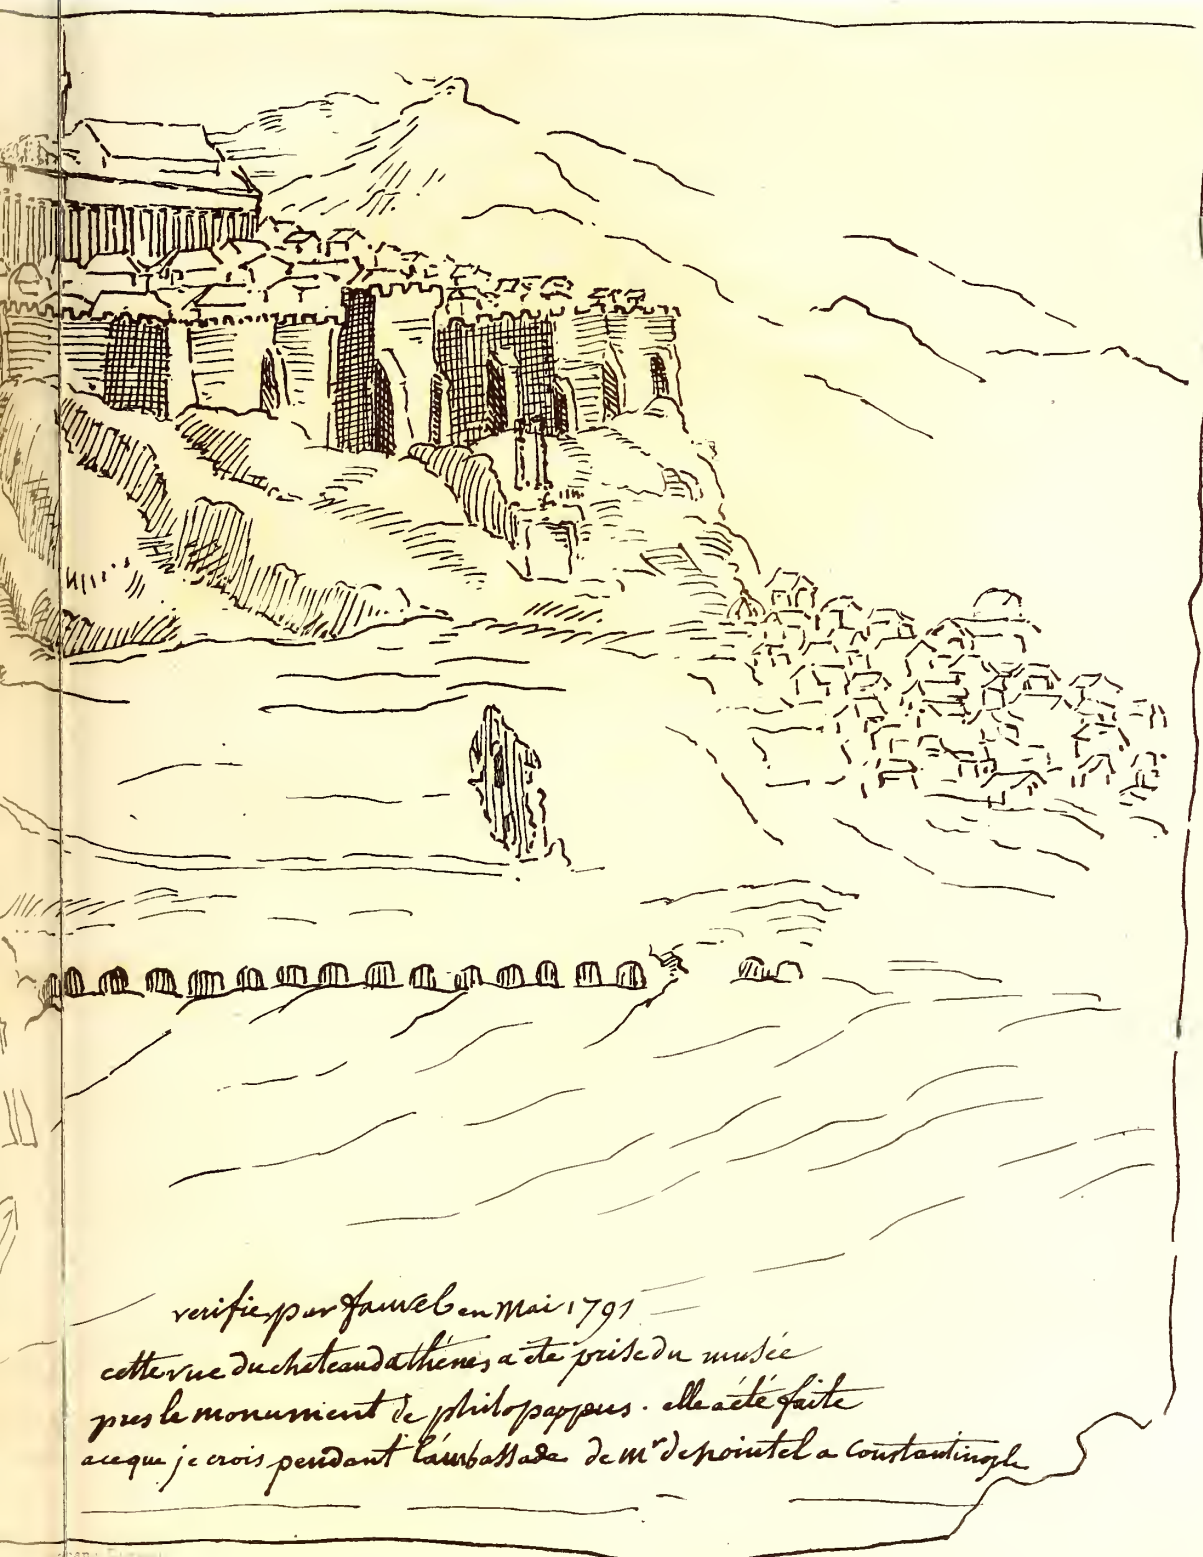 verifie par fauvel en Mai 1791
cette vue du chateau dathénes a ete prise du musée
pres le monument de philopappus. elle a été faite
a ce que je crois pendant l'ambassade de mr de pointel a Constantinople